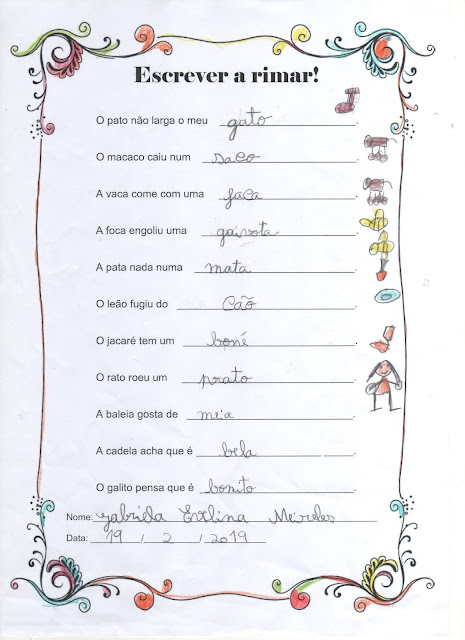 Escrever a rimar!
O pato não larga o meu gato.
O macaco caiu num saco.
A vaca come com uma faca.
A foca engoliu uma gaivota.
A pata nada numa mata.
O leão fugiu do cão.
O jacaré tem um boné.
O rato roeu um prato.
A baleia gosta de meia.
A cadela acha que é bela.
O galito pensa que é bonito.
Nome: Gabriela Meireles
Data: 19 / 2 / 2019